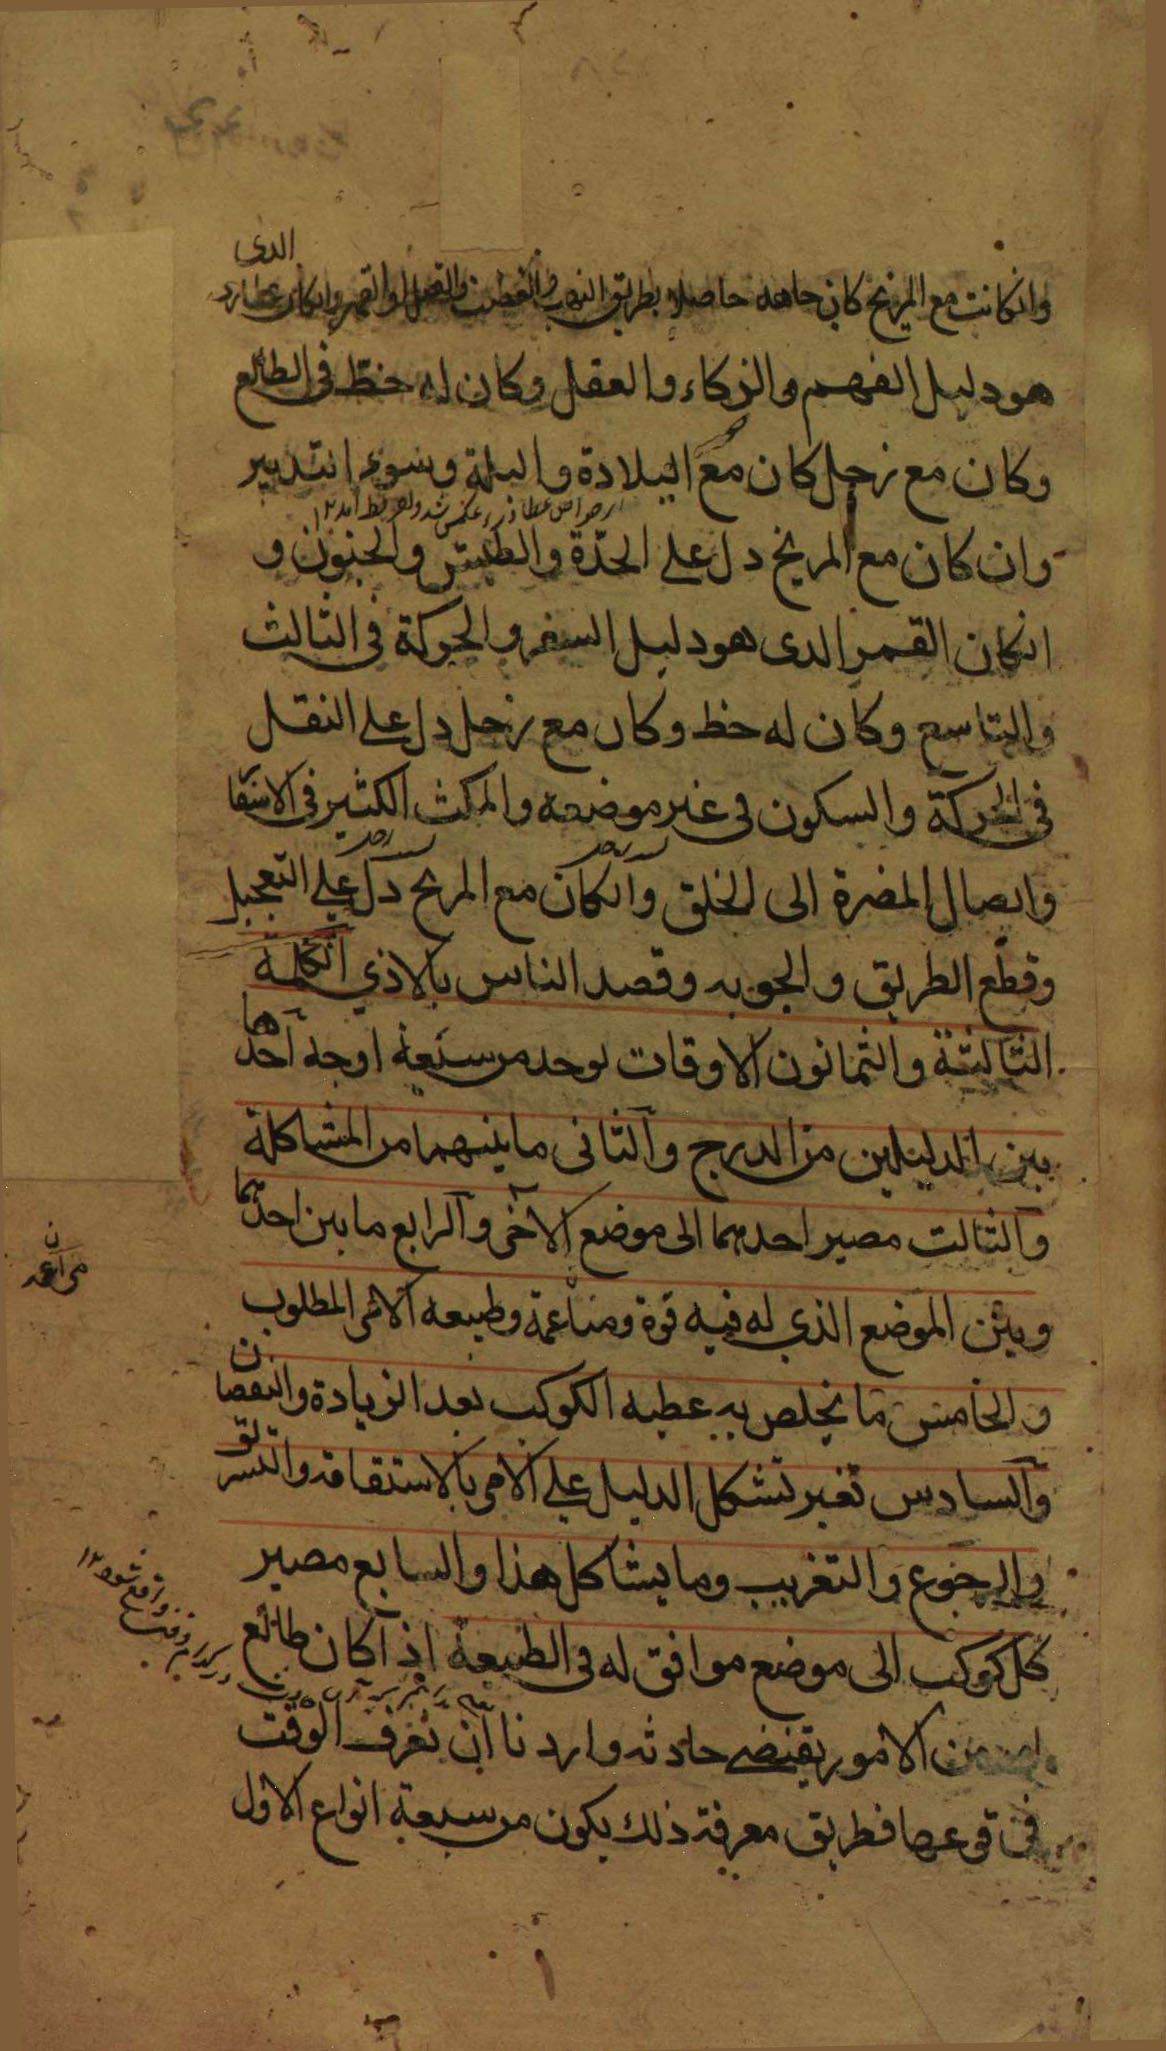 الدى
وانكانت مع المريخ كان جاهه حاصلا بطريق النهب والغصب والقتل والقهر وانكان عطارد
هو دليل الفهم والزكاء والعقل وكان له حظ فى الطالع
وكان مع زحل كان مع البلادة والبله وسوء التدبير
وان كان مع المريخ دل على الحدّة والطيش والجنون و
انكان القمر الدى هو دليل السفر والحركة فى الثالث
والتاسع وكان له حظ وكان مع زحل دل على الثقل
فى الحركة والسكون فى غير موضعه والمكث الكثير فى الاسفا
وايصال المضرة الى الخلق وانكان مع المريخ دل على التعجيل
وقطع الطريق والحوبه وقصد الناس بالاذي الكلمة
الثالثة والثمانون الاوقات توحد من سبعة اوجه احدها
بين الدليلين من الدرج والثانى ما بينهما من المشاكلة
والثالث مصير احدهما الى موضع الاخر والرابع ما بين احدهما
وبين الموضع الذي له فيه قوة ومناعمة وطبيعه الامر المطلوب
والخامس ما يخلص به عطيه الكوكب بعد الزيادة والنقصان
والسادس تغير تشكل الدليل على الامر بالاستقامة والتشريق
والرجوع والتغريب وما يشاكل هذا والسابع مصير
كل كوكب الى موضع موافق له فى الطبيعة اذا كان طالع
من الامور يقتضى حادثه واردنا ان نعرف الوقت
فى قوعها فطريق معرفة ذلك يكون من سبعة انواع الاول